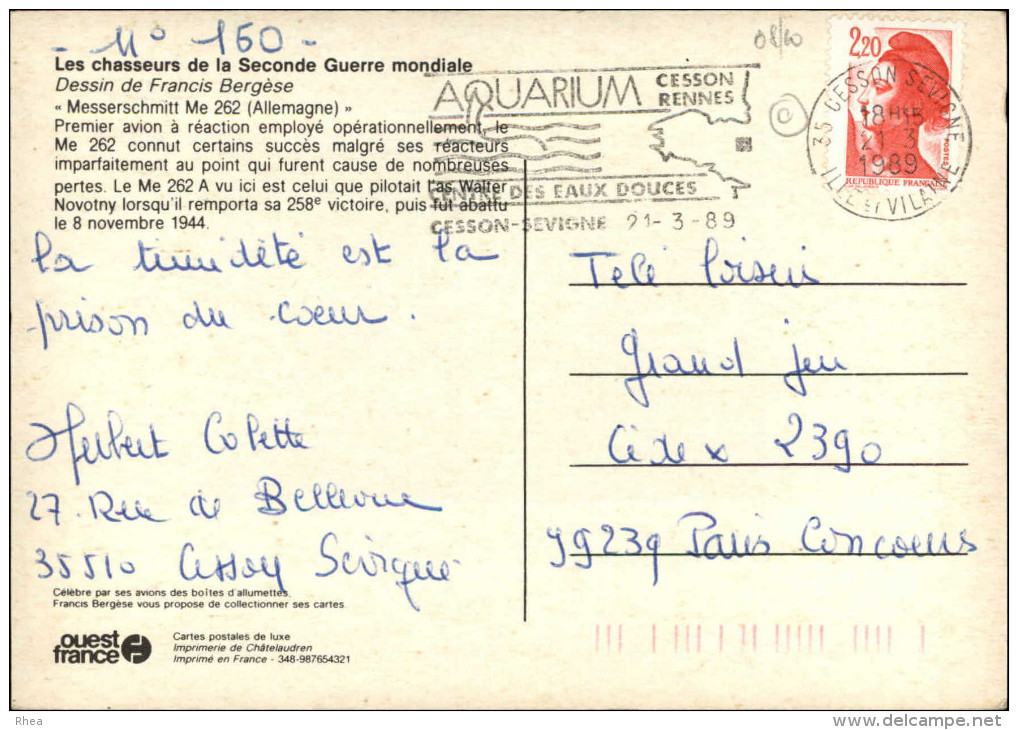 - N° 160 -
Les chasseurs de la Seconde Guerre mondiale
Dessin de Francis Bergèse
« Messerschmitt Me 262 (Allemagne) »
Premier avion à réaction employé opérationnellement, le
Me 262 connut certains succès malgré ses réacteurs
imparfaitement au point qui furent cause de nombreuses
pertes. Le Me 262 A vu ici est celui que pilotait l'as Walter
Novotny lorsqu'il remporta sa 258e victoire, puis fut abattu
le 8 novembre 1944.
la timidété est la
prison du coeur.
Herbert Colette
27. Rue de Bellevue
35510 Cesson Sévigné
Célèbre par ses avions des boîtes d'allumettes.
Francis Bergèse vous propose de collectionner ses cartes.
ouest
france
Cartes postales de luxe
Imprimerie de Châtelaudren
Imprimé en France - 348-987654321
AQUARIUM
CESSON
RENNES
CENTRE DES EAUX DOUCES
CESSON-SEVIGNE 21-3-89
08/60
C
2,20
POSTES
REPUBLIQUE FRANÇAISE
35 CESSON SEVIGNE
18H15
21-3
1989
ILLE ET VILAINE
Télé loisir
Grand jeu
Cedex 2390
99239 Paris Concours
Rhea
www.delcampe.net